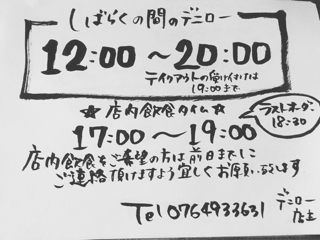 しばらくの間のデニロー
12:00 〜20:00
テイクアウトの受け付けは
19:00まで
☆店内飲食タイム☆
ラストオーダー
18:30
17:00 〜 19:00
店内飲食をご希望の方は前日までに
ご連絡頂けますよう宜しくお願い致します
Tel 0764933631
デニロー
店主